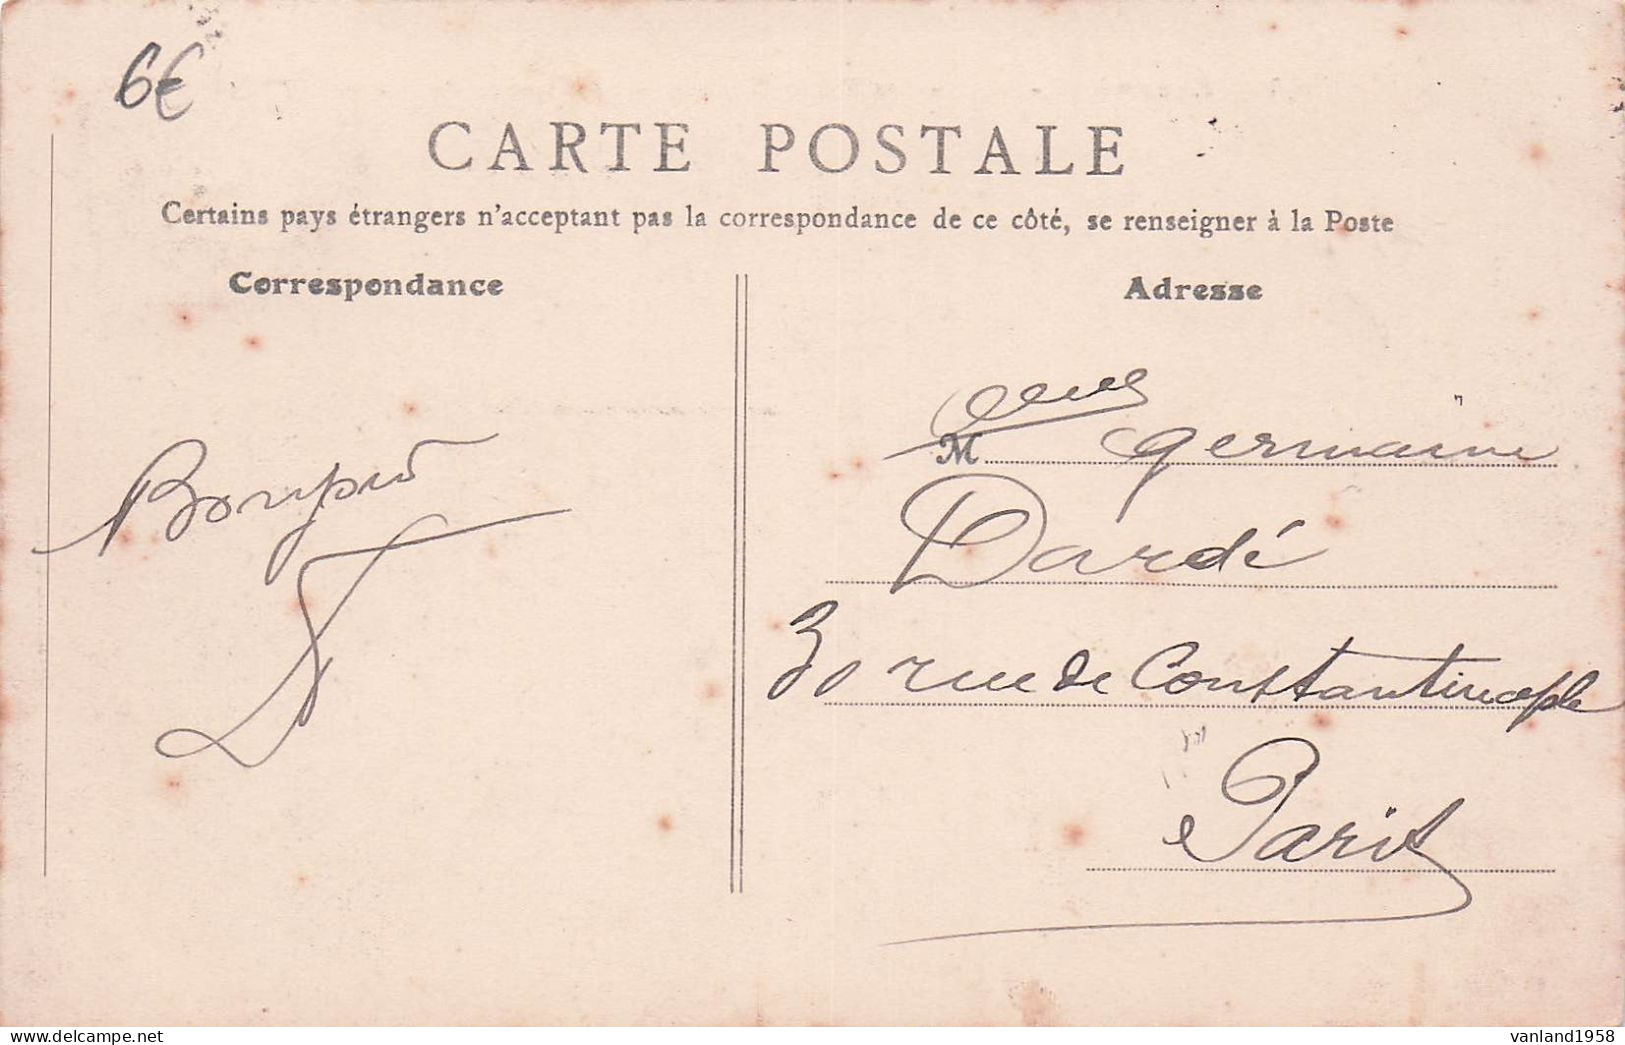 6€
CARTE POSTALE
Certains pays étrangers n'acceptant pas la correspondance de ce côté, se renseigner à la Poste
Correspondance
Adresse
M Germaine
Dardé
30 rue de Constantinople
Paris
vanland1958